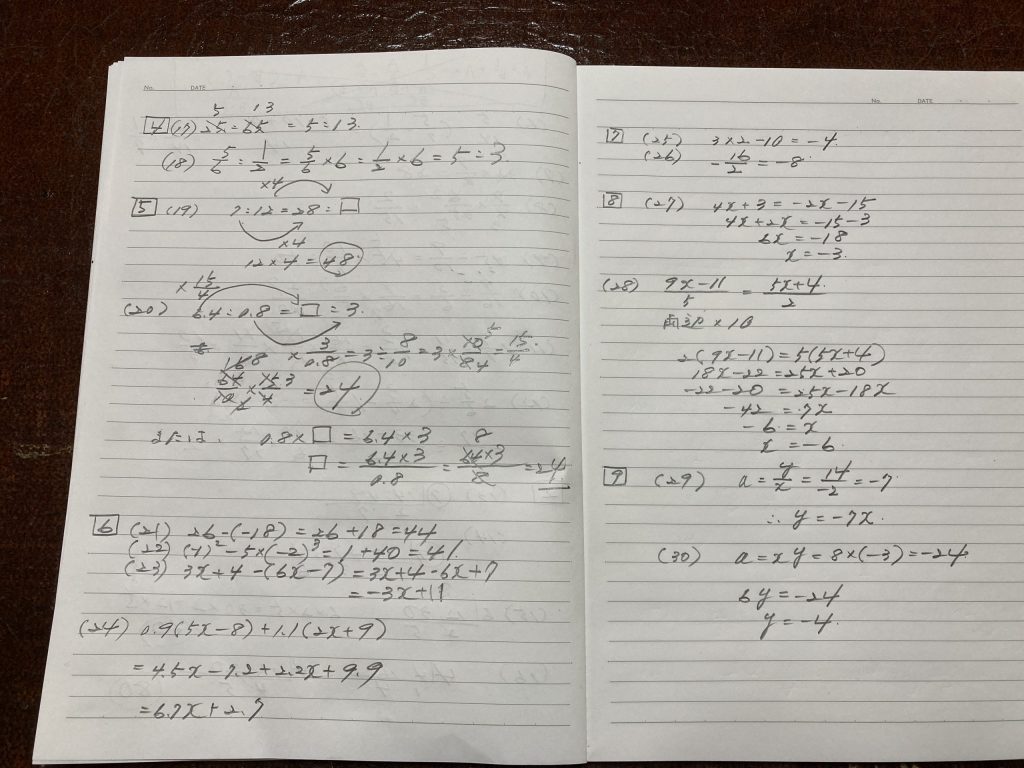 No. DATE
5 13
4 (17) 25:65 = 5:13.
(18) 5/6 : 1/2 = 5/6 × 6 : 1/2 × 6 = 5:3
×4
5 (19) 7:12 = 28:□
×4
12×4 = 48.
× 15/4
(20) 6.4:0.8 = □:3.
× 3/0.8 = 3 ÷ 8/10 = 3 × 10/8 = 15/4.
64/10 × 15/4 = 24
または、 0.8×□ = 6.4×3
□ = 6.4×3/0.8 = 64×3/8 = 24
6 (21) 26-(-18) = 26+18 = 44
(22) (-1)²-5×(-2)³ = 1+40 = 41.
(23) 3x+4-(6x-7) = 3x+4-6x+7
= -3x+11
(24) 0.9(5x-8)+1.1(2x+9)
= 4.5x-7.2+2.2x+9.9
= 6.7x+2.7
No. DATE
7 (25) 3×2-10 = -4.
(26) -16/2 = -8.
8 (27) 4x+3 = -2x-15
4x+2x = -15-3
6x = -18
x = -3.
(28) 9x-11/5 = 5x+4/2
両辺×10
2(9x-11) = 5(5x+4)
18x-22 = 25x+20
-22-20 = 25x-18x
-42 = 7x
-6 = x
x = -6.
9 (29) a = y/x = 14/-2 = -7
∴ y = -7x.
(30) a = xy = 8×(-3) = -24
6y = -24
y = -4.